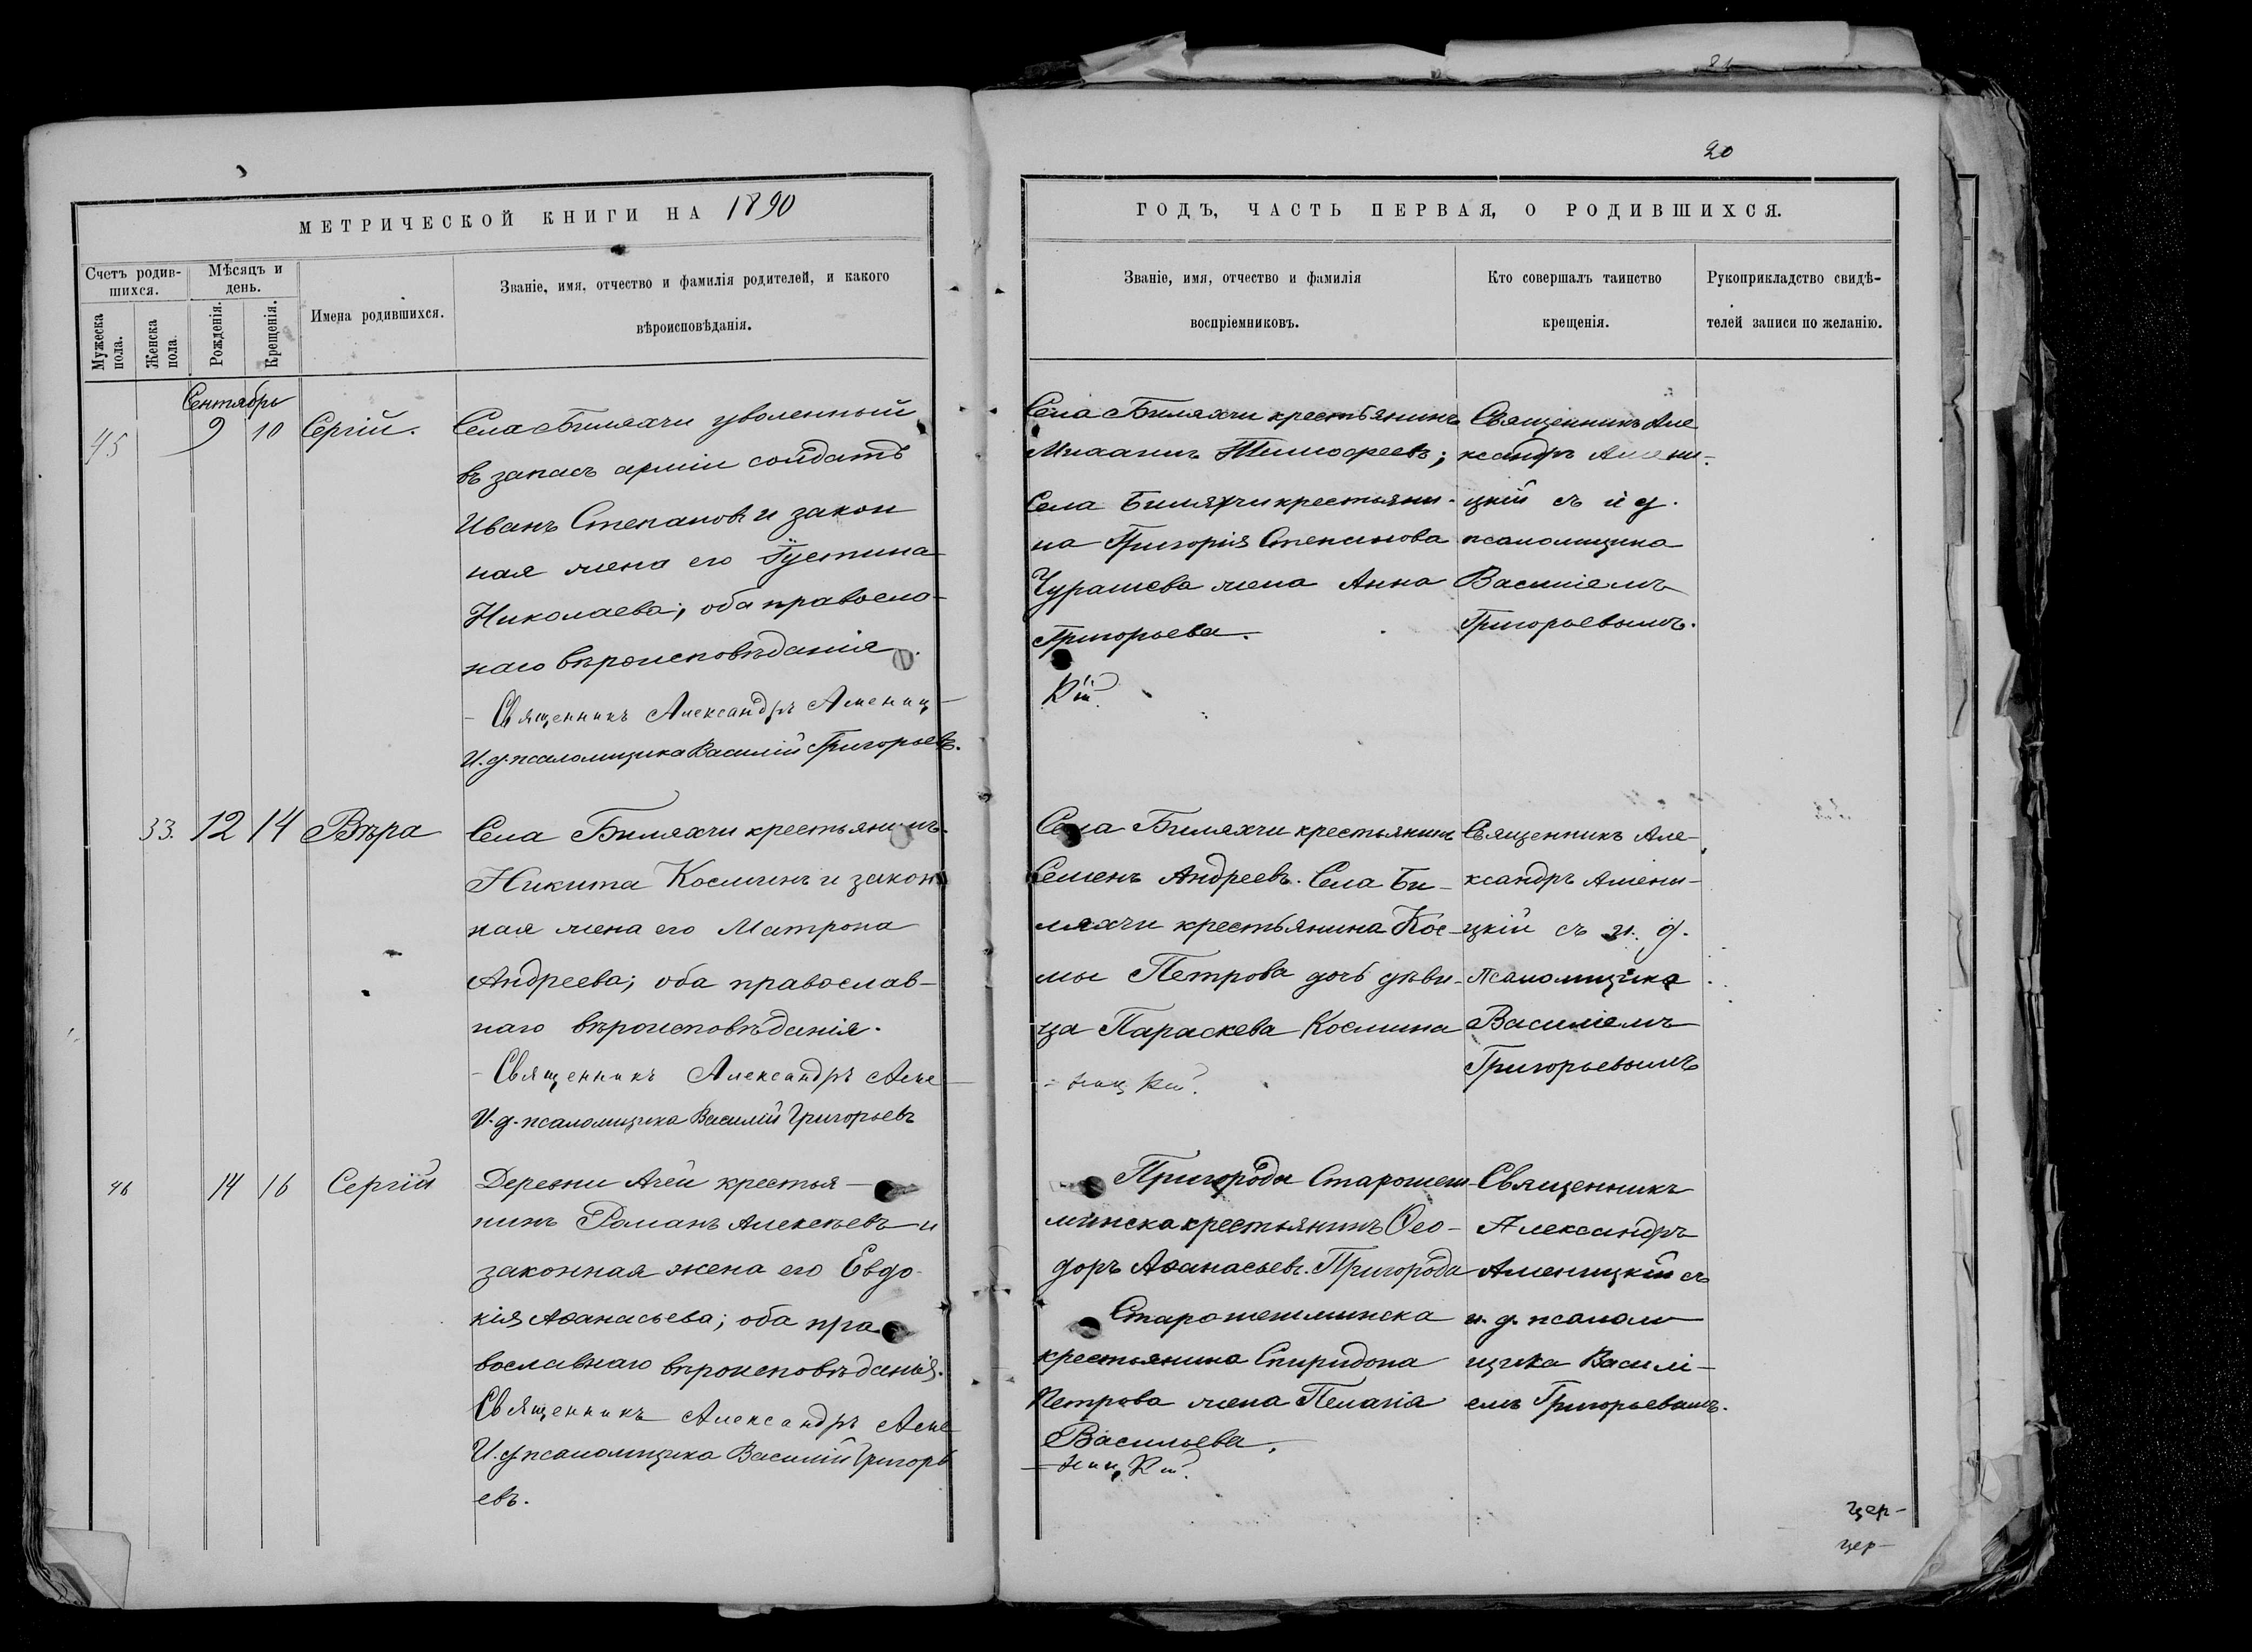 20
МЕТРИЧЕСКОЙ КНИГИ НА 1890
ГОДЪ, ЧАСТЬ ПЕРВАЯ, О РОДИВШИХСЯ.
Счетъ родив-
шихся.
Мужеска
пола.
Женска
пола.
Мѣсяцъ и
день.
Рожденія.
Крещенія.
Имена родившихся.
Званіе, имя, отчество и фамилія родителей, и какого
вѣроисповѣданія.
Званіе, имя, отчество и фамилія
воспріемниковъ.
Кто совершалъ таинство
крещенія.
Рукоприкладство свидѣ-
телей записи по желанію.
Сентябрь
45
9
10
Сергій.
Села Биляхчи уволенный
въ запасъ арміи солдатъ
Иванъ Степановъ и закон
ная жена его Іустина
Николаева; оба правосла-
наго вѣроисповѣданія.
Священникъ Александръ Амениц-
И. д. псаломщика Василій Григорьевъ.
Села Биляхчи крестьянинъ
Михаилъ Тимофеевъ;
Села Биляхчи крестьяни-
на Григорія Степанова
Чурашева жена Анна
Григорьева.
кій.
Священникъ Але
ксандръ Амени-
цкій съ и д.
псаломщика
Василіемъ
Григорьевымъ.
33.
12
14
Вѣра
Села Биляхчи крестьянинъ.
Никита Косминъ и закон
ная жена его Матрона
Андреева; оба православ-
наго вѣроисповѣданія.
- Священникъ Александръ Аме-
И. д. псаломщика Василій Григорьевъ
Села Биляхчи крестьянинъ
Семенъ Андреевъ. Села Би-
ляхчи крестьянина Кос-
мы Петрова дочь дѣви-
ца Параскева Космина
- ницкій.
Священникъ Але-
ксандръ Амени-
цкій съ и. д.
псаломщика
Василіемъ
Григорьевымъ
46
14
16
Сергій
Деревни Ачи крестья-
нинъ Романъ Алексѣевъ и
законная жена его Евдо-
кія Аѳанасьева; оба пра
вославнаго вѣроисповѣданія.
Священникъ Александръ Аме
И. д. псаломщика Василій Григорь
евъ.
Пригорода Старошеш-
минска крестьянинъ Ѳео-
доръ Аѳанасьевъ. Пригорода
Старошешминска
крестьянина Спиридона
Петрова жена Пелагія
Васильева.
- ницкій.
Священникъ
Александръ
Аменицкій съ
и. д. псалом
щика Василі-
емъ Григорьевымъ.
цер-
цер-